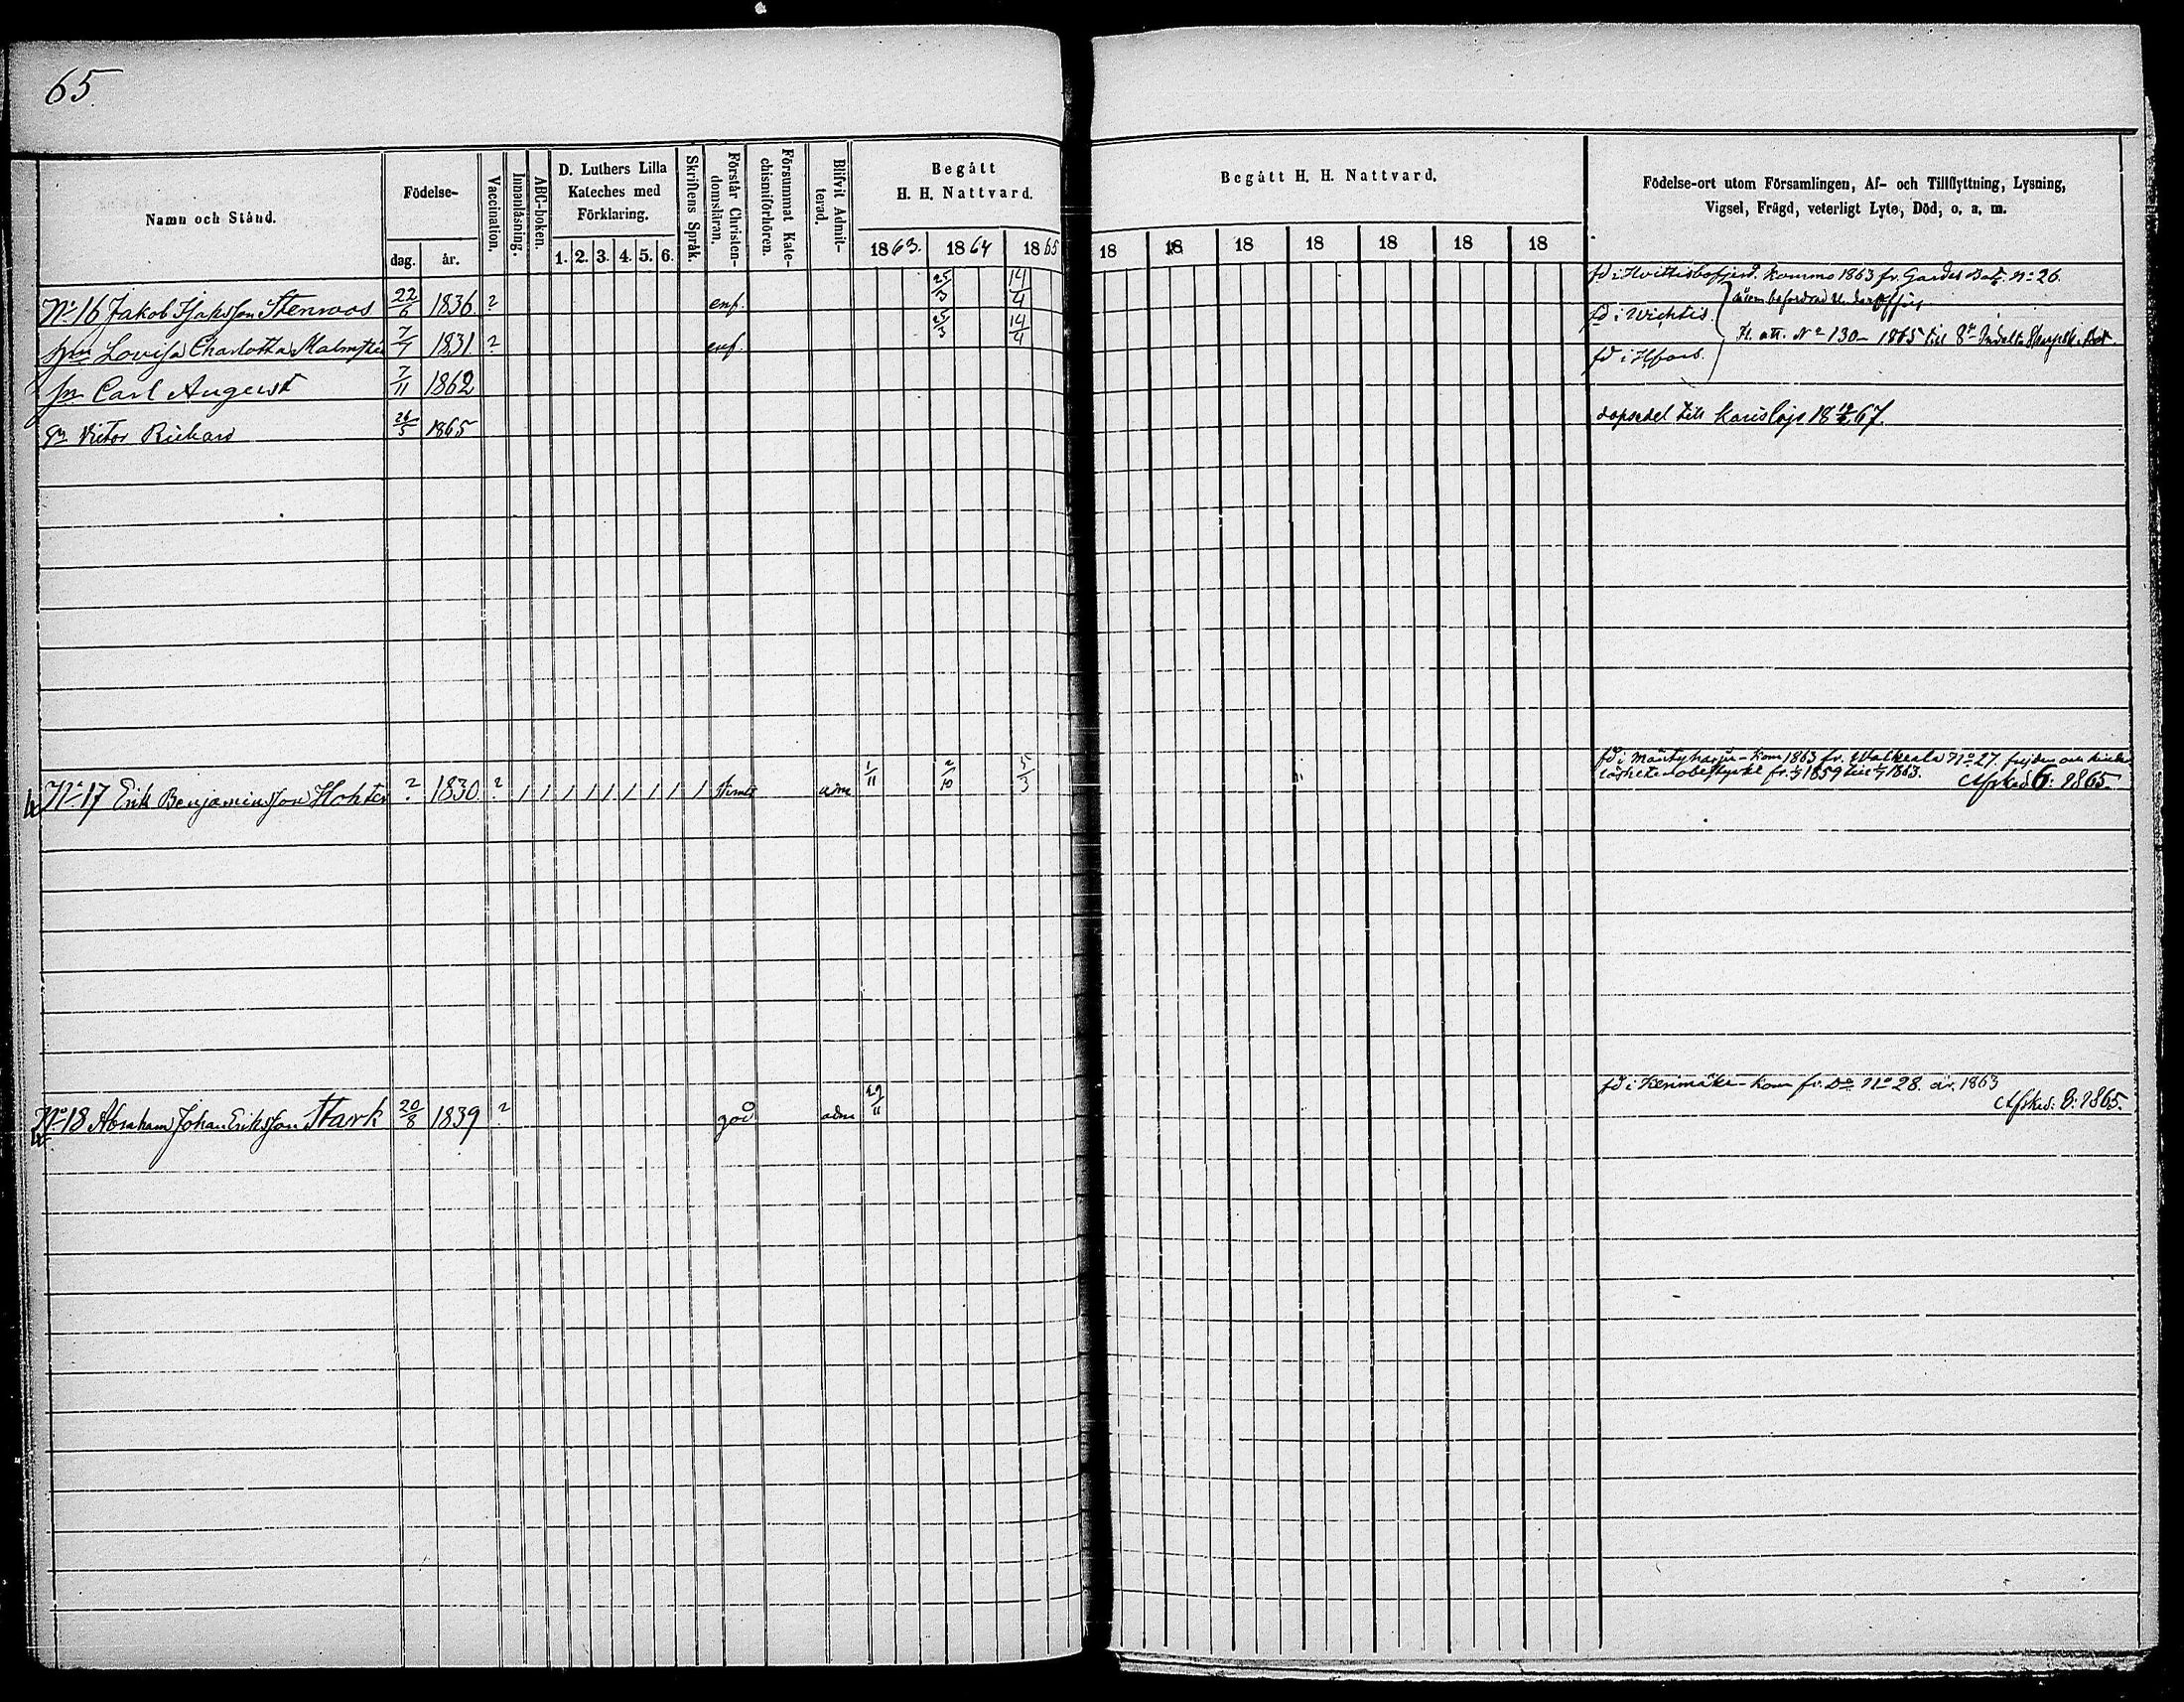 65.
Namn och Stånd.
Födelse-
dag. år.
Vaccination.
Innanläsning.
ABC-boken.
D. Luthers Lilla
Kateches med
Förklaring.
1. 2. 3. 4. 5. 6.
Skriftens Språk.
Förstår Christen-
domsläran.
Försummat Kate-
chismiförhören.
Blifvit Admit-
terad.
Begått
H. H. Nattvard.
1863. 1864 1865
Begått H. H. Nattvard.
18 18 18 18 18 18 18
Födelse-ort utom Församlingen, Af- och Tillflyttning, Lysning,
Vigsel, Frägd, veterligt Lyte, Död, o. a. m.
No 16 Jakob Stenroos 22/6 1836 ? enf. 25/3 14/4 fd i Hvittisbofjerd. kommo 1863 fr. Gardes Bat. No 26.
Lovisa Charlotta 7/7 1831 ? enf. 25/3 14/4 fd i Wichtis. No 130 1865 till 8de
sn Carl August 7/11 1862 fd i Hfors.
sn Victor Rickard 26/5 1865 dopsedel till Karislojo 1867.
No 17 Erik Benjaminsson ? 1830 ? / / / / / / / / / adm 1/11 2/10 5/3 fd i Mäntyharju - kom 1863 fr. Walkeala No 27.
fr. 1859 till 1863. Afsked 6: 1865.
No 18 Abraham Johan Eriksson Stark 20/8 1839 ? god adm 29/11 fd i Kerimäki - kom fr. Do No 28. år. 1863
Afsked: 6: 1865.